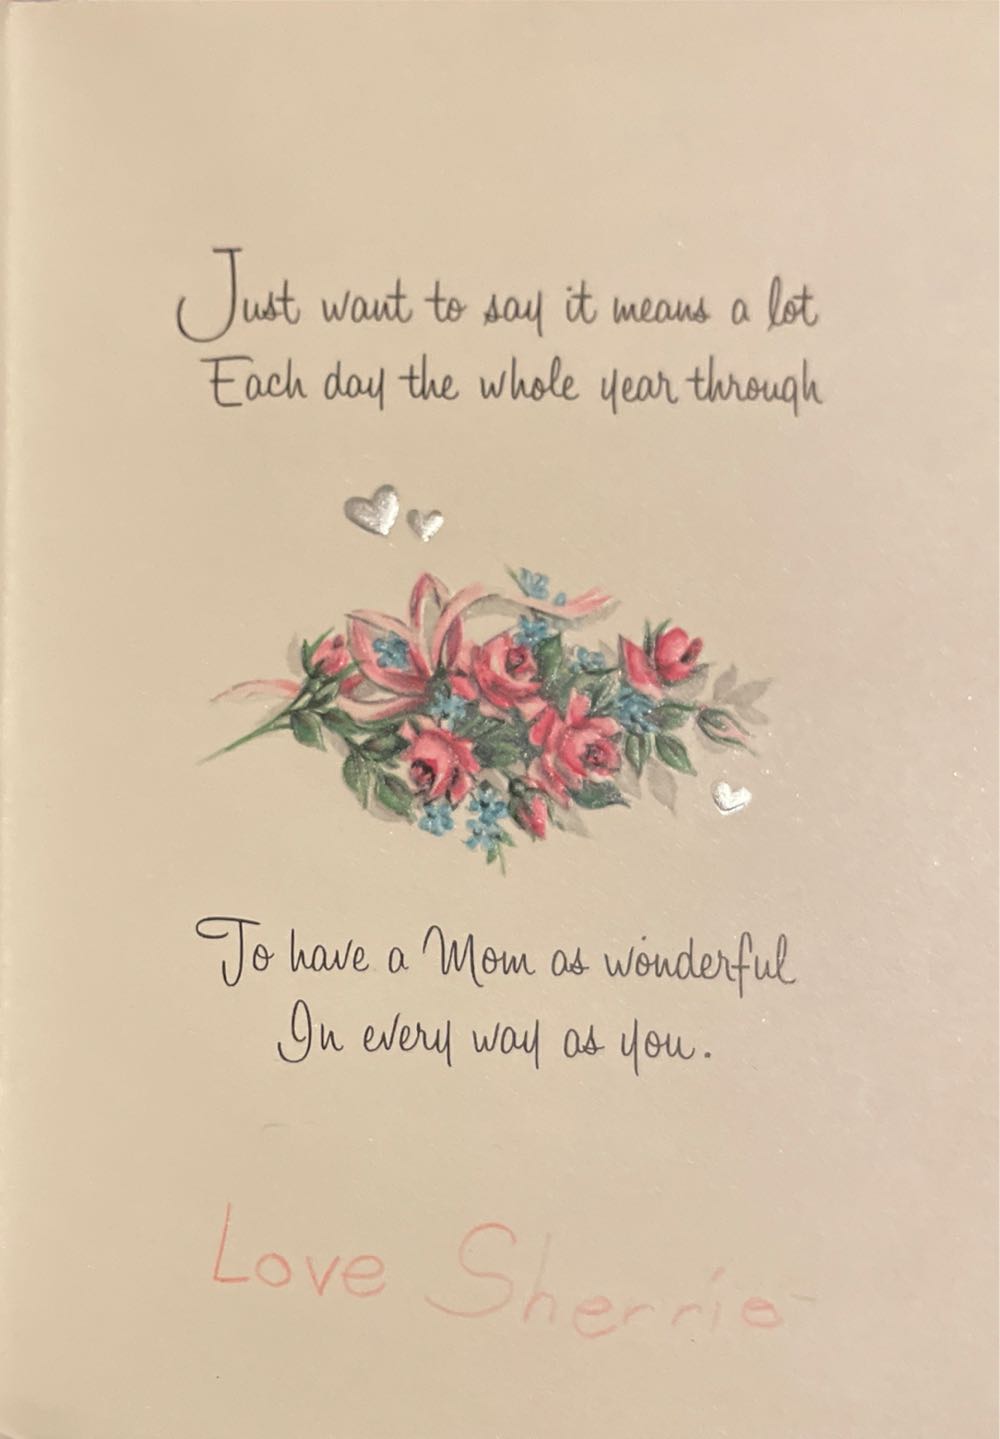 Just want to say it means a lot
Each day the whole year through
To have a Mom as wonderful
In every way as you.
Love Sherrie